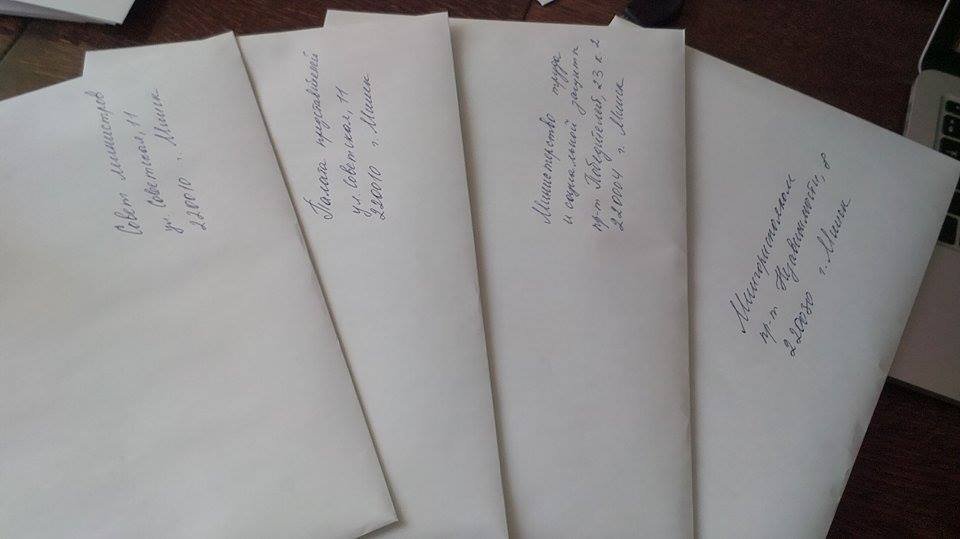 Совет министров
ул. Советская, 11
220010 г. Минск
Палата представителей
ул. Советская, 11
220010 г. Минск
Министерство труда
и социальной защиты
пр-т Победителей, 23 к 2
220004 г. Минск
Мингорисполком
пр-т Независимости, 8
220030 г. Минск